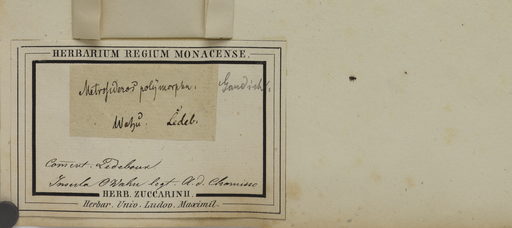 HERBARIUM REGIUM MONACENSE.
Metrosideros polymorpha. Gaudich.
Wahu. Ledeb.
Comvent. Ledebour
Insula O Wahu legt. A. d. Chamisso
HERB. ZUCCARINII.
Herbar. Univ. Ludov. Maximil.